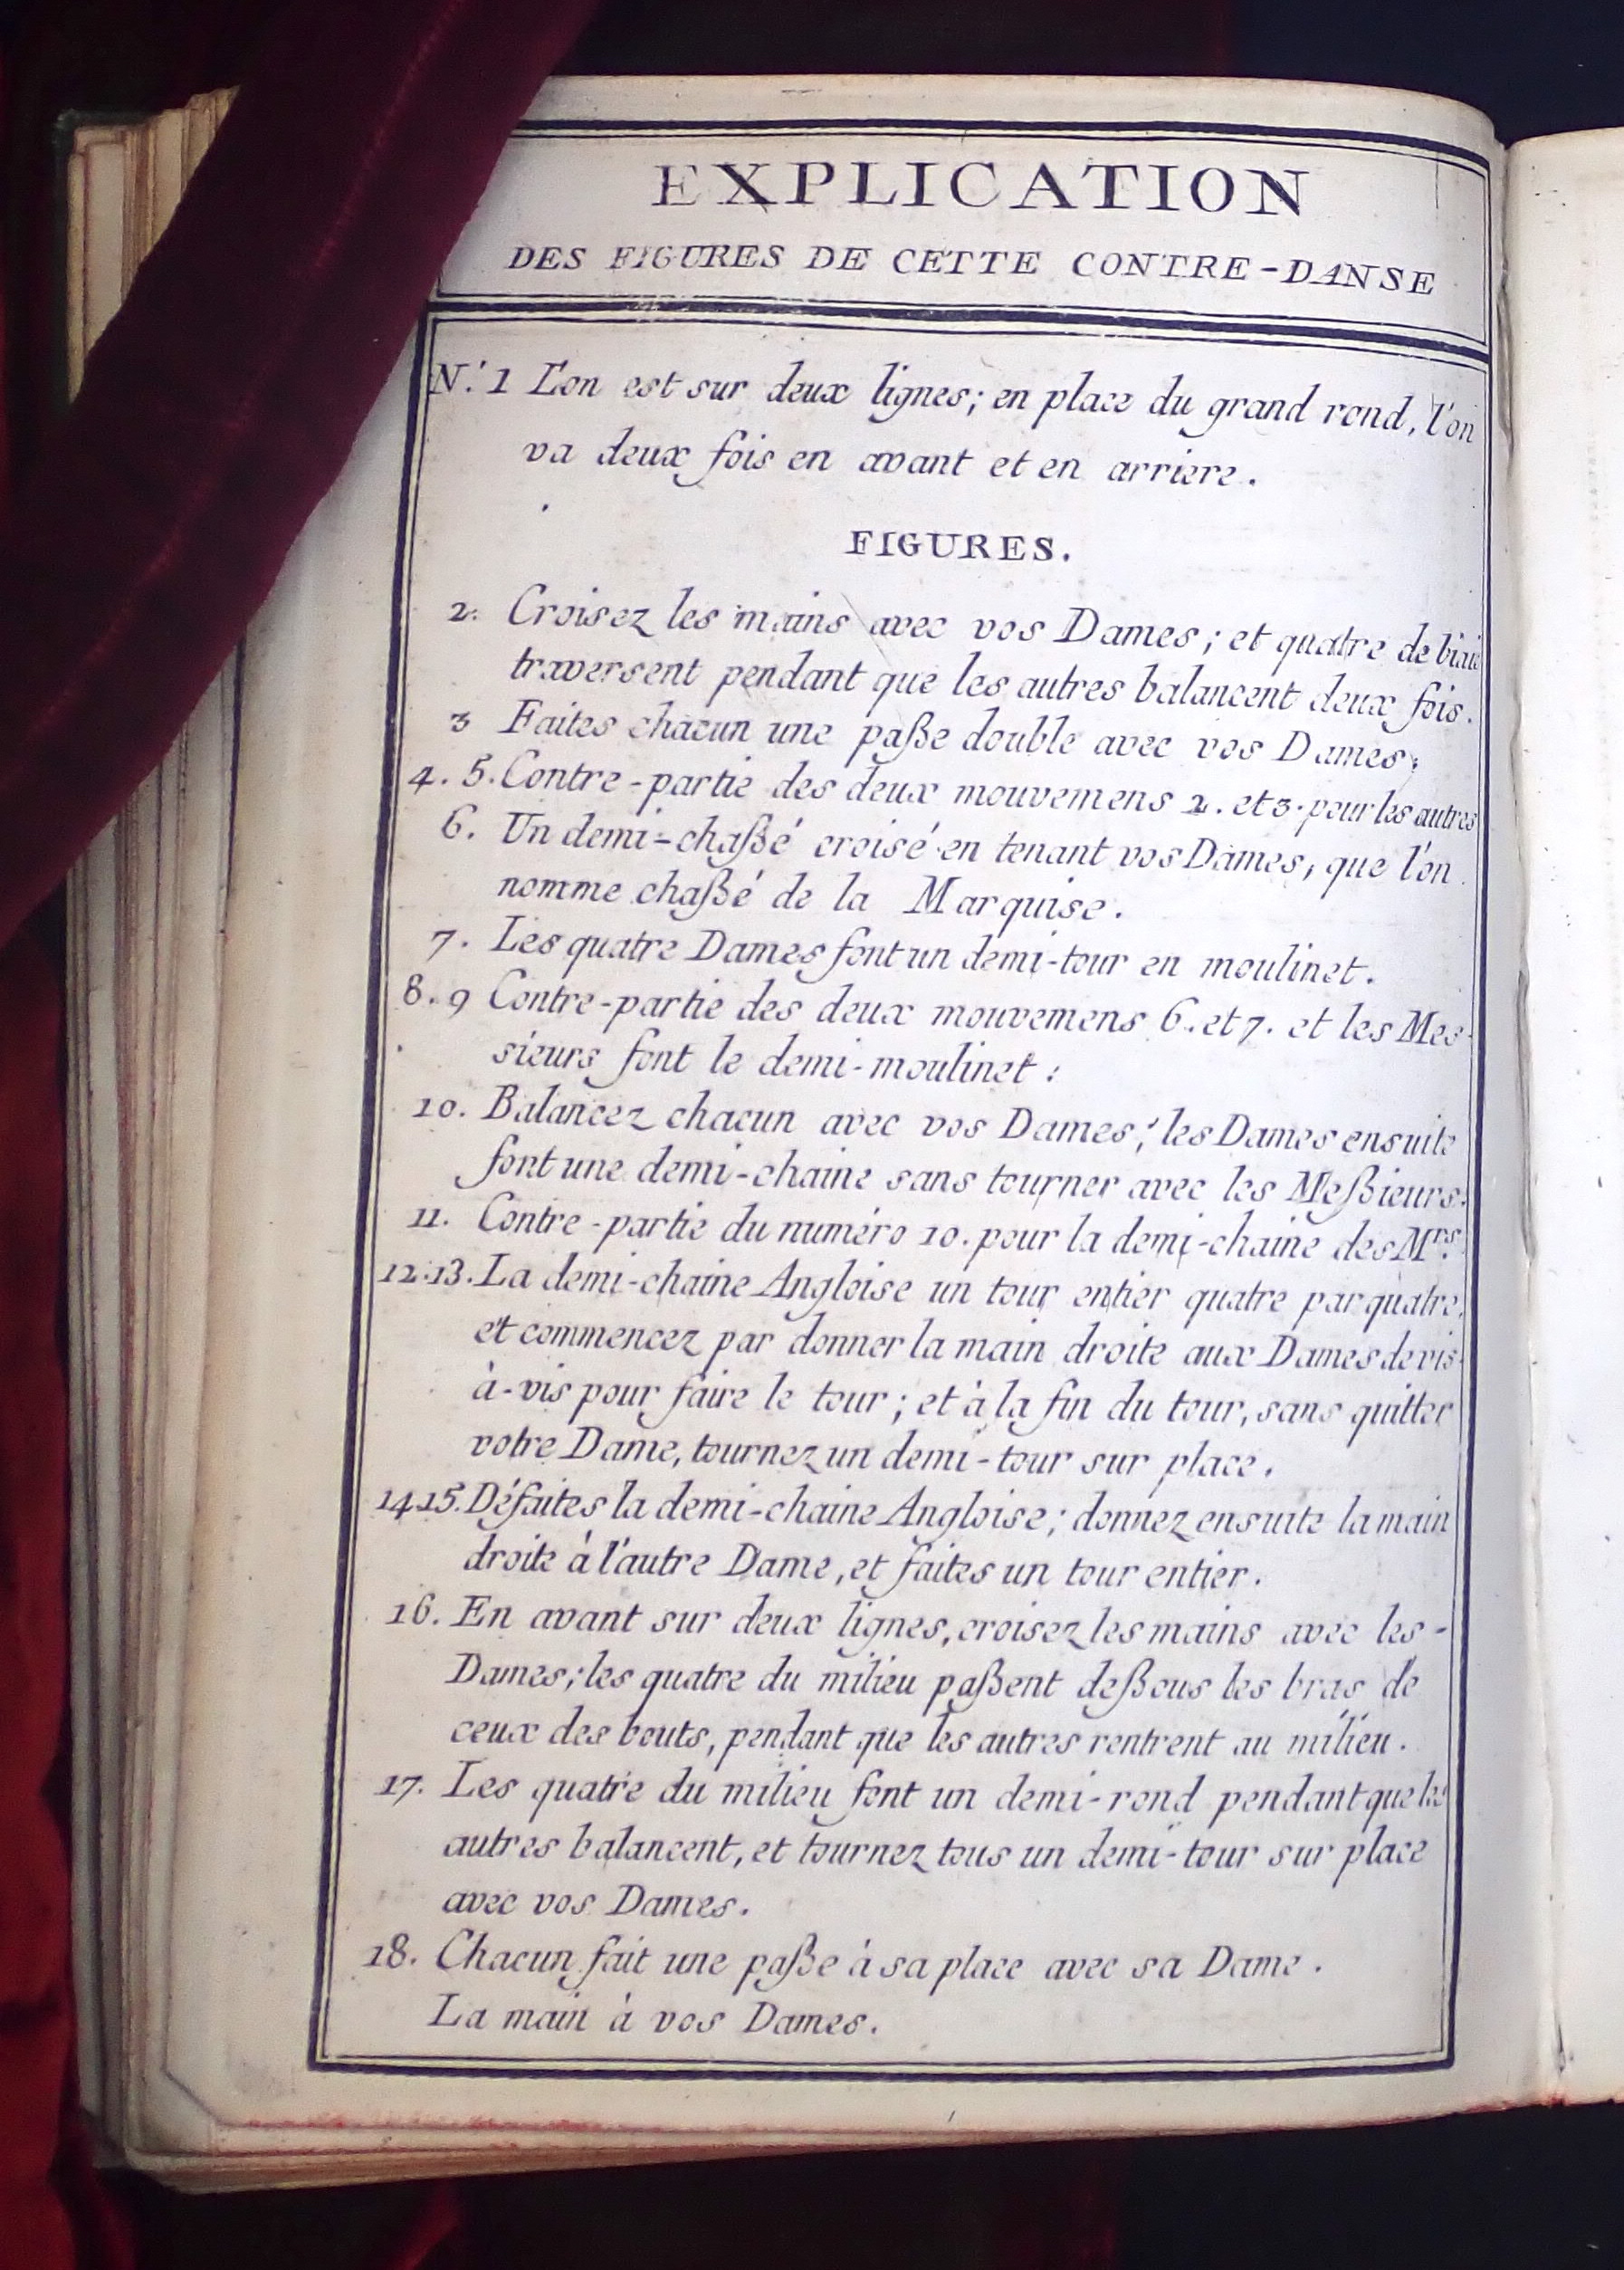 EXPLICATION
DES FIGURES DE CETTE CONTRE-DANSE
N.º 1 L'on est sur deux lignes; en place du grand rond, l'on
va deux fois en avant et en arriere.
FIGURES.
2. Croisez les mains avec vos Dames; et quatre de biais
traversent pendant que les autres balancent deux fois.
3 Faites chacun une paße double avec vos Dames;
4. 5. Contre-partie des deux mouvemens 2. et 3. pour les autres
6. Un demi-chaßé croisé en tenant vos Dames, que l'on
nomme chaßé de la Marquise.
7. Les quatre Dames font un demi-tour en moulinet.
8. 9 Contre-partie des deux mouvemens 6. et 7. et les Mes-
sieurs font le demi-moulinet:
10. Balancez chacun avec vos Dames; les Dames ensuite
font une demi-chaine sans tourner avec les Meßieurs.
11. Contre-partie du numéro 10. pour la demi-chaine des Mrs.
12.13. La demi-chaine Angloise un tour entier quatre par quatre,
et commencez par donner la main droite aux Dames de vis-
à-vis pour faire le tour; et à la fin du tour, sans quitter
votre Dame, tournez un demi-tour sur place.
14.15. Défaites la demi-chaine Angloise; donnez ensuite la main
droite à l'autre Dame, et faites un tour entier.
16. En avant sur deux lignes, croisez les mains avec les-
Dames; les quatre du milieu paßent deßous les bras de
ceux des bouts, pendant que les autres rentrent au milieu.
17. Les quatre du milieu font un demi-rond pendant que les
autres balancent, et tournez tous un demi-tour sur place
avec vos Dames.
18. Chacun fait une paße à sa place avec sa Dame.
La main à vos Dames.